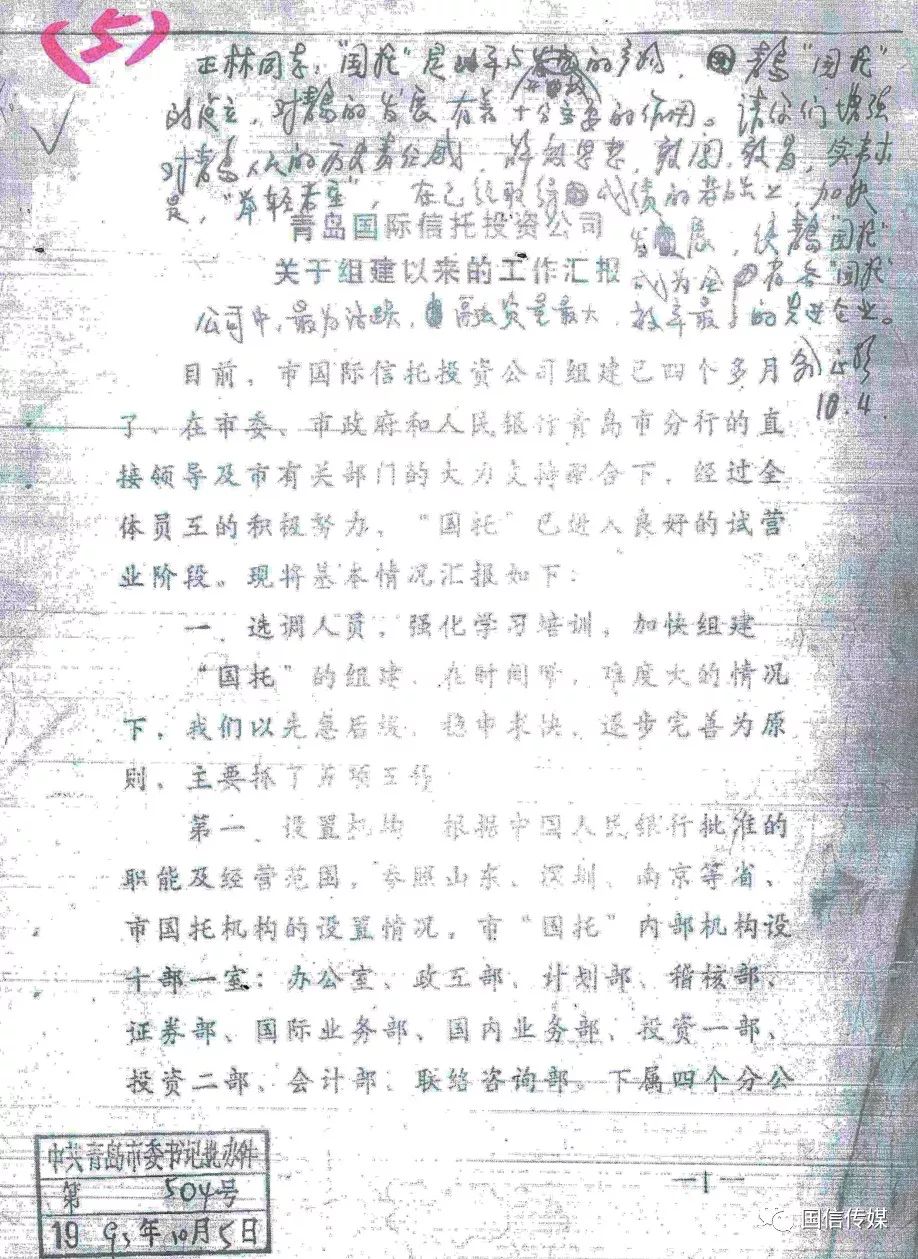 (5)
正林同志："国托"是 的 ，青岛"国托"
的建立，对青岛的发展有着十分重要的作用。请你们增强
对青岛人的历史责任感，解放思想，敢闯，敢冒，实事求
是，"举轻若重"，在已经取得 成绩的基础上，加快
青岛国际信托投资公司
发展，使青岛"国托"
关于组建以来的工作汇报
成为全 省各"国托"
公司中，最为活跃， 融资量最大，效率最 的 企业。
目前，市国际信托投资公司组建已四个多月
俞正声
10.4.
了，在市委、市政府和人民银行青岛市分行的直
接领导及市有关部门的大力支持配合下，经过全
体员工的积极努力，"国托"已进入良好的试营
业阶段。现将基本情况汇报如下：
一、选调人员，强化学习培训，加快组建
"国托"的组建，在时间 ，难度大的情况
下，我们以先急后缓、稳中求快、逐步完善为原
则，主要抓了 项工作
第一、设置机构 根据中国人民银行批准的
职能及经营范围，参照山东、深圳、南京等省、
市国托机构的设置情况，市"国托"内部机构设
十部一室：办公室、政工部、计划部、稽核部、
证券部、国际业务部、国内业务部、投资一部、
投资二部、会计部、联络咨询部。下属四个分公
中共青岛市委书记批办件
第 504号
1993年10月5日
—1—
国信传媒